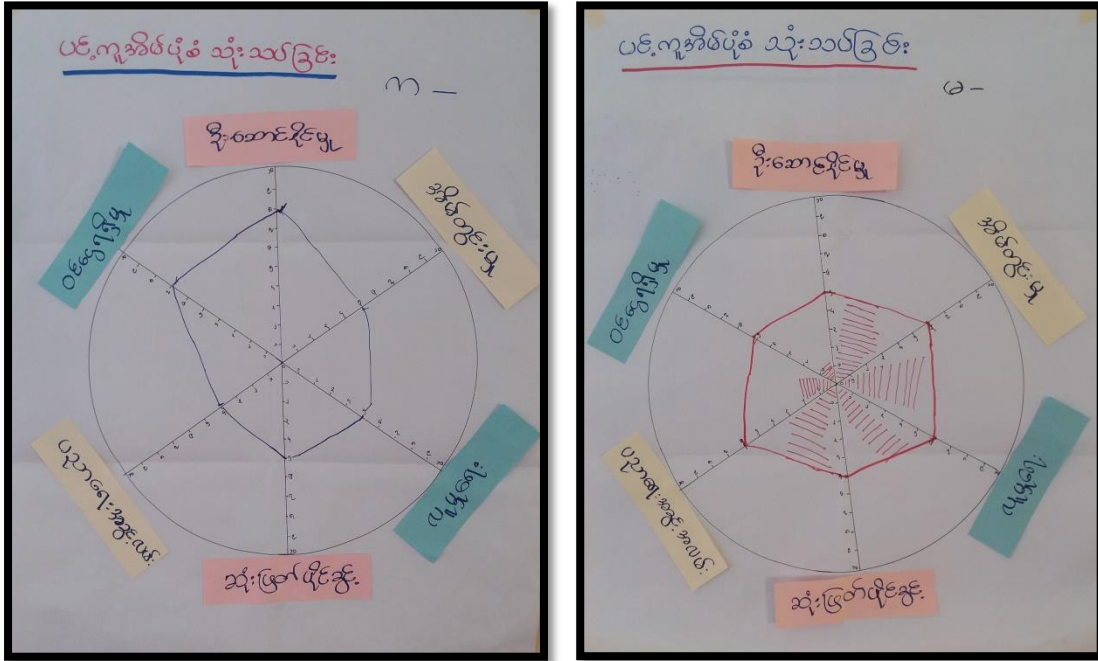 ပင့်ကူအိမ်ပုံစံ သုံးသပ်ခြင်း
ကျ –
ဦးဆောင်နိုင်မှု
အိမ်တွင်းမှု
လူမှုရေး
ဆုံးဖြတ်ပိုင်ခွင့်
ပညာရေးအခွင့်အလမ်း
ဝင်ငွေရရှိမှု
ပင့်ကူအိမ်ပုံစံ သုံးသပ်ခြင်း
မ –
ဦးဆောင်နိုင်မှု
အိမ်တွင်းမှု
လူမှုရေး
ဆုံးဖြတ်ပိုင်ခွင့်
ပညာရေးအခွင့်အလမ်း
ဝင်ငွေရရှိမှု